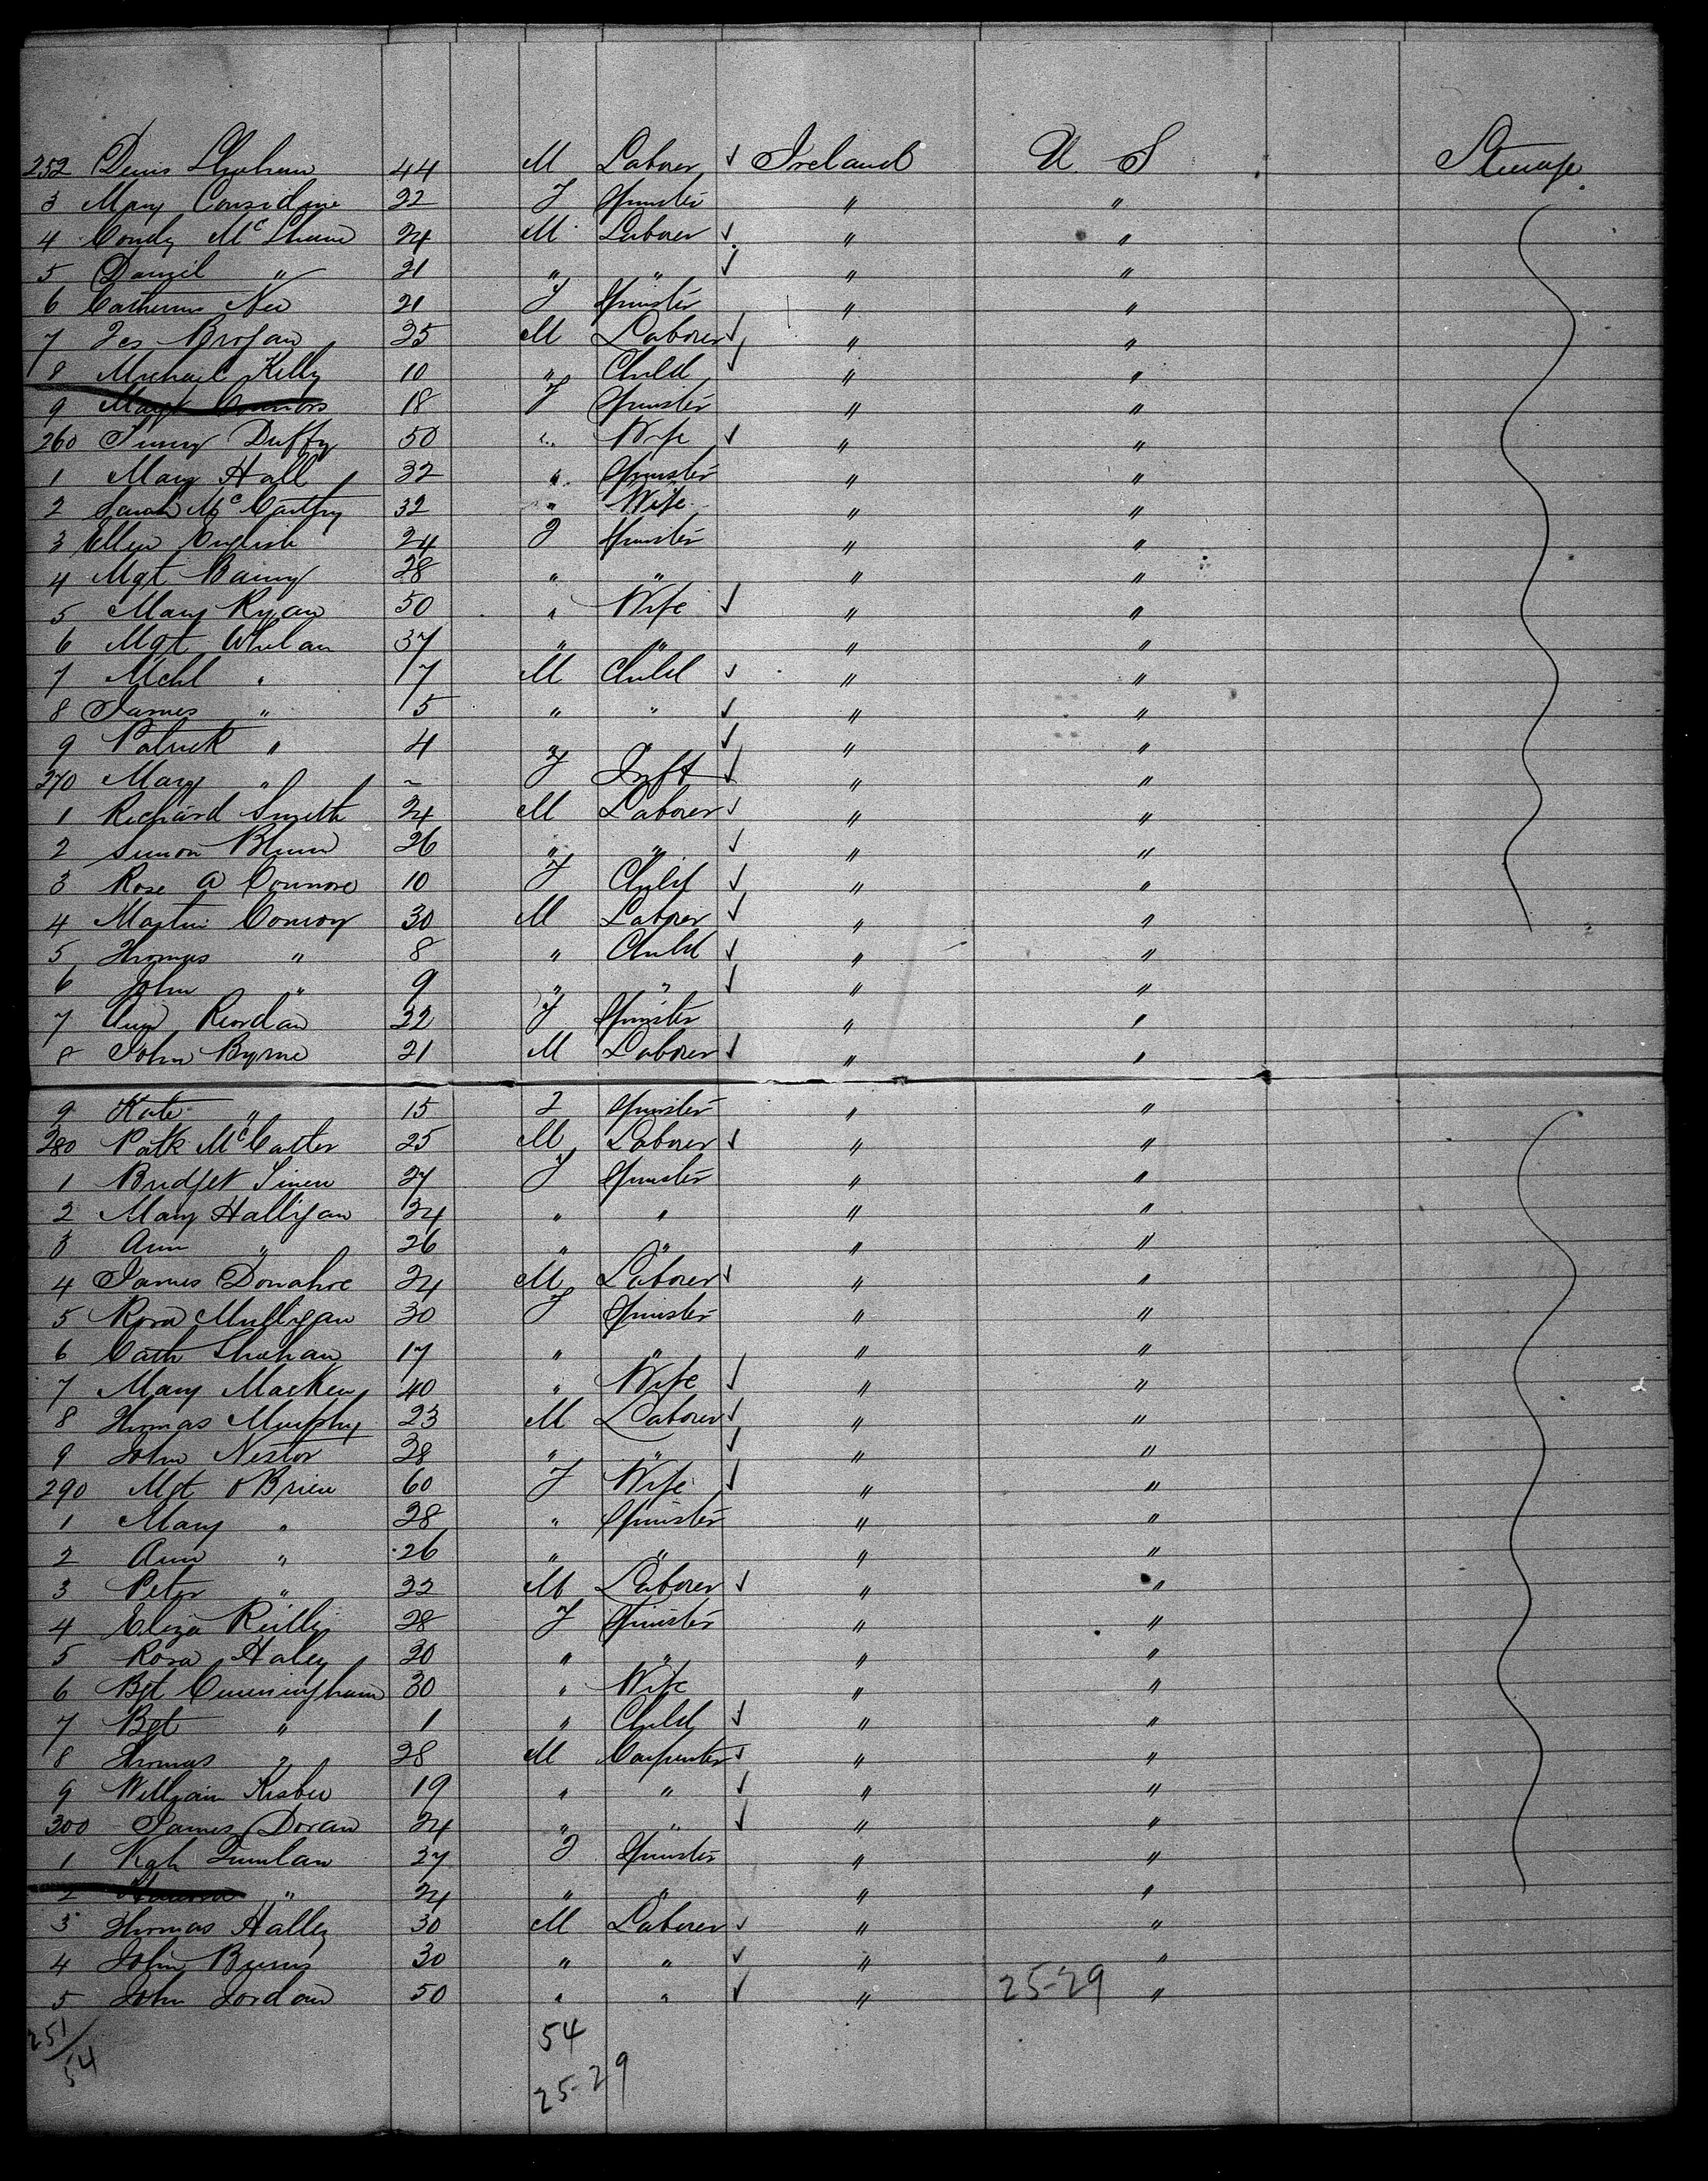 252 Denis Shehan 44 M Laborer ✓ Ireland U. S Steerage
3 Mary Considine 22 F Spinster " "
4 Condy McShane 24 M Laborer ✓ " "
5 Daniel " 21 " " ✓ " "
6 Catherine Nee 21 F Spinster " "
7 Jas Brogan 25 M Laborer ✓ " "
8 Michael Kelly 10 " Child ✓ " "
9 Margt Connors 18 F Spinster " "
260 Duffy 50 " Wife ✓ " "
1 Mary Hall 32 " Spinster " "
2 Sarah McCarthy 32 " Wife " "
3 Ellen English 24 F Spinster " "
4 Mgt 28 " " " "
5 Mary Ryan 50 " Wife ✓ " "
6 Mgt Whelan 37 " " " "
7 Mchl " 7 M Child ✓ " "
8 James " 5 " " ✓ " "
9 Patrick " 4 " " ✓ " "
270 Mary " ~ F Inft ✓ " "
1 Richard Smith 24 M Laborer ✓ " "
2 Simon 26 " " ✓ " "
3 Rose A Connors 10 F Child ✓ " "
4 Martin Conroy 30 M Laborer ✓ " "
5 Thomas " 8 " Child ✓ " "
6 John " 9 " " ✓ " "
7 Riordan 22 F Spinster " "
8 John Byrne 21 M Laborer ✓ " "
9 Kate " 15 F Spinster " "
280 Patk McCarter 25 M Laborer ✓ " "
1 Bridget 27 F Spinster " "
2 Mary Halligan 24 " " " "
3 Ann " 26 " " " "
4 James Donahoe 24 M Laborer ✓ " "
5 Rosa Mulligan 30 F Spinster " "
6 Cath Shehan 17 " " " "
7 Mary Macken 40 " Wife ✓ " "
8 Thomas Murphy 23 M Laborer ✓ " "
9 John Nestor 28 " " ✓ " "
290 Mgt OBrien 60 F Wife ✓ " "
1 Mary " 28 " Spinster " "
2 Ann " 26 " " " "
3 Peter " 22 M Laborer ✓ " "
4 Eliza Reilly 28 F Spinster " "
5 Rosa Haley 20 " " " "
6 Bgt Cunningham 30 " Wife " "
7 Bgt " 1 " Child ✓ " "
8 Thomas " 28 M Carpenter ✓ " "
9 William 19 " " ✓ " "
300 James Doran 24 " " ✓ " "
1 Quinlan 27 F Spinster " "
2 " 24 " " " "
3 Thomas Halley 30 M Laborer ✓ " "
4 John Burns 30 " " ✓ " "
5 John Jordan 50 " " ✓ " 25-29 "
251/54 54
25-29